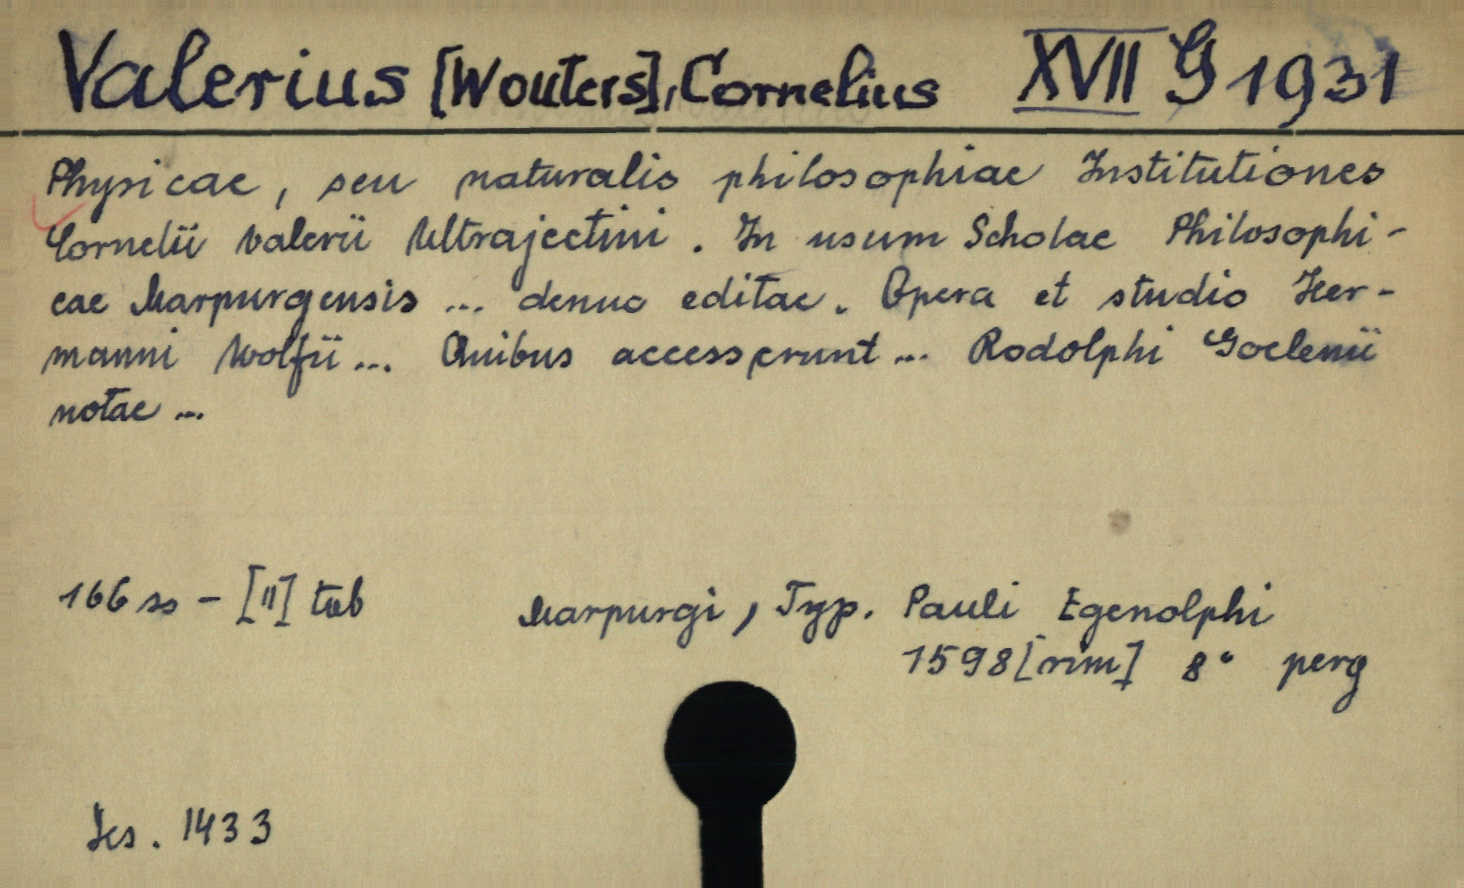 Valerius [Wouters], Cornelius XVII G 1931
Physicae, seu naturalis philosophiae Institutiones
Cornelii Valerii Ultrajectini. In usum Scholae Philosophi-
cae Marpurgensis ... denuo editae. Opera et studio Her-
manni Wolfii ... Quibus accesserunt ... Rodolphi Goclenii
notae ...
166 ss - [II] tab Marpurgi, Typ. Pauli Egenolphi
1598 [rim] 8° perg
Ies. 1433